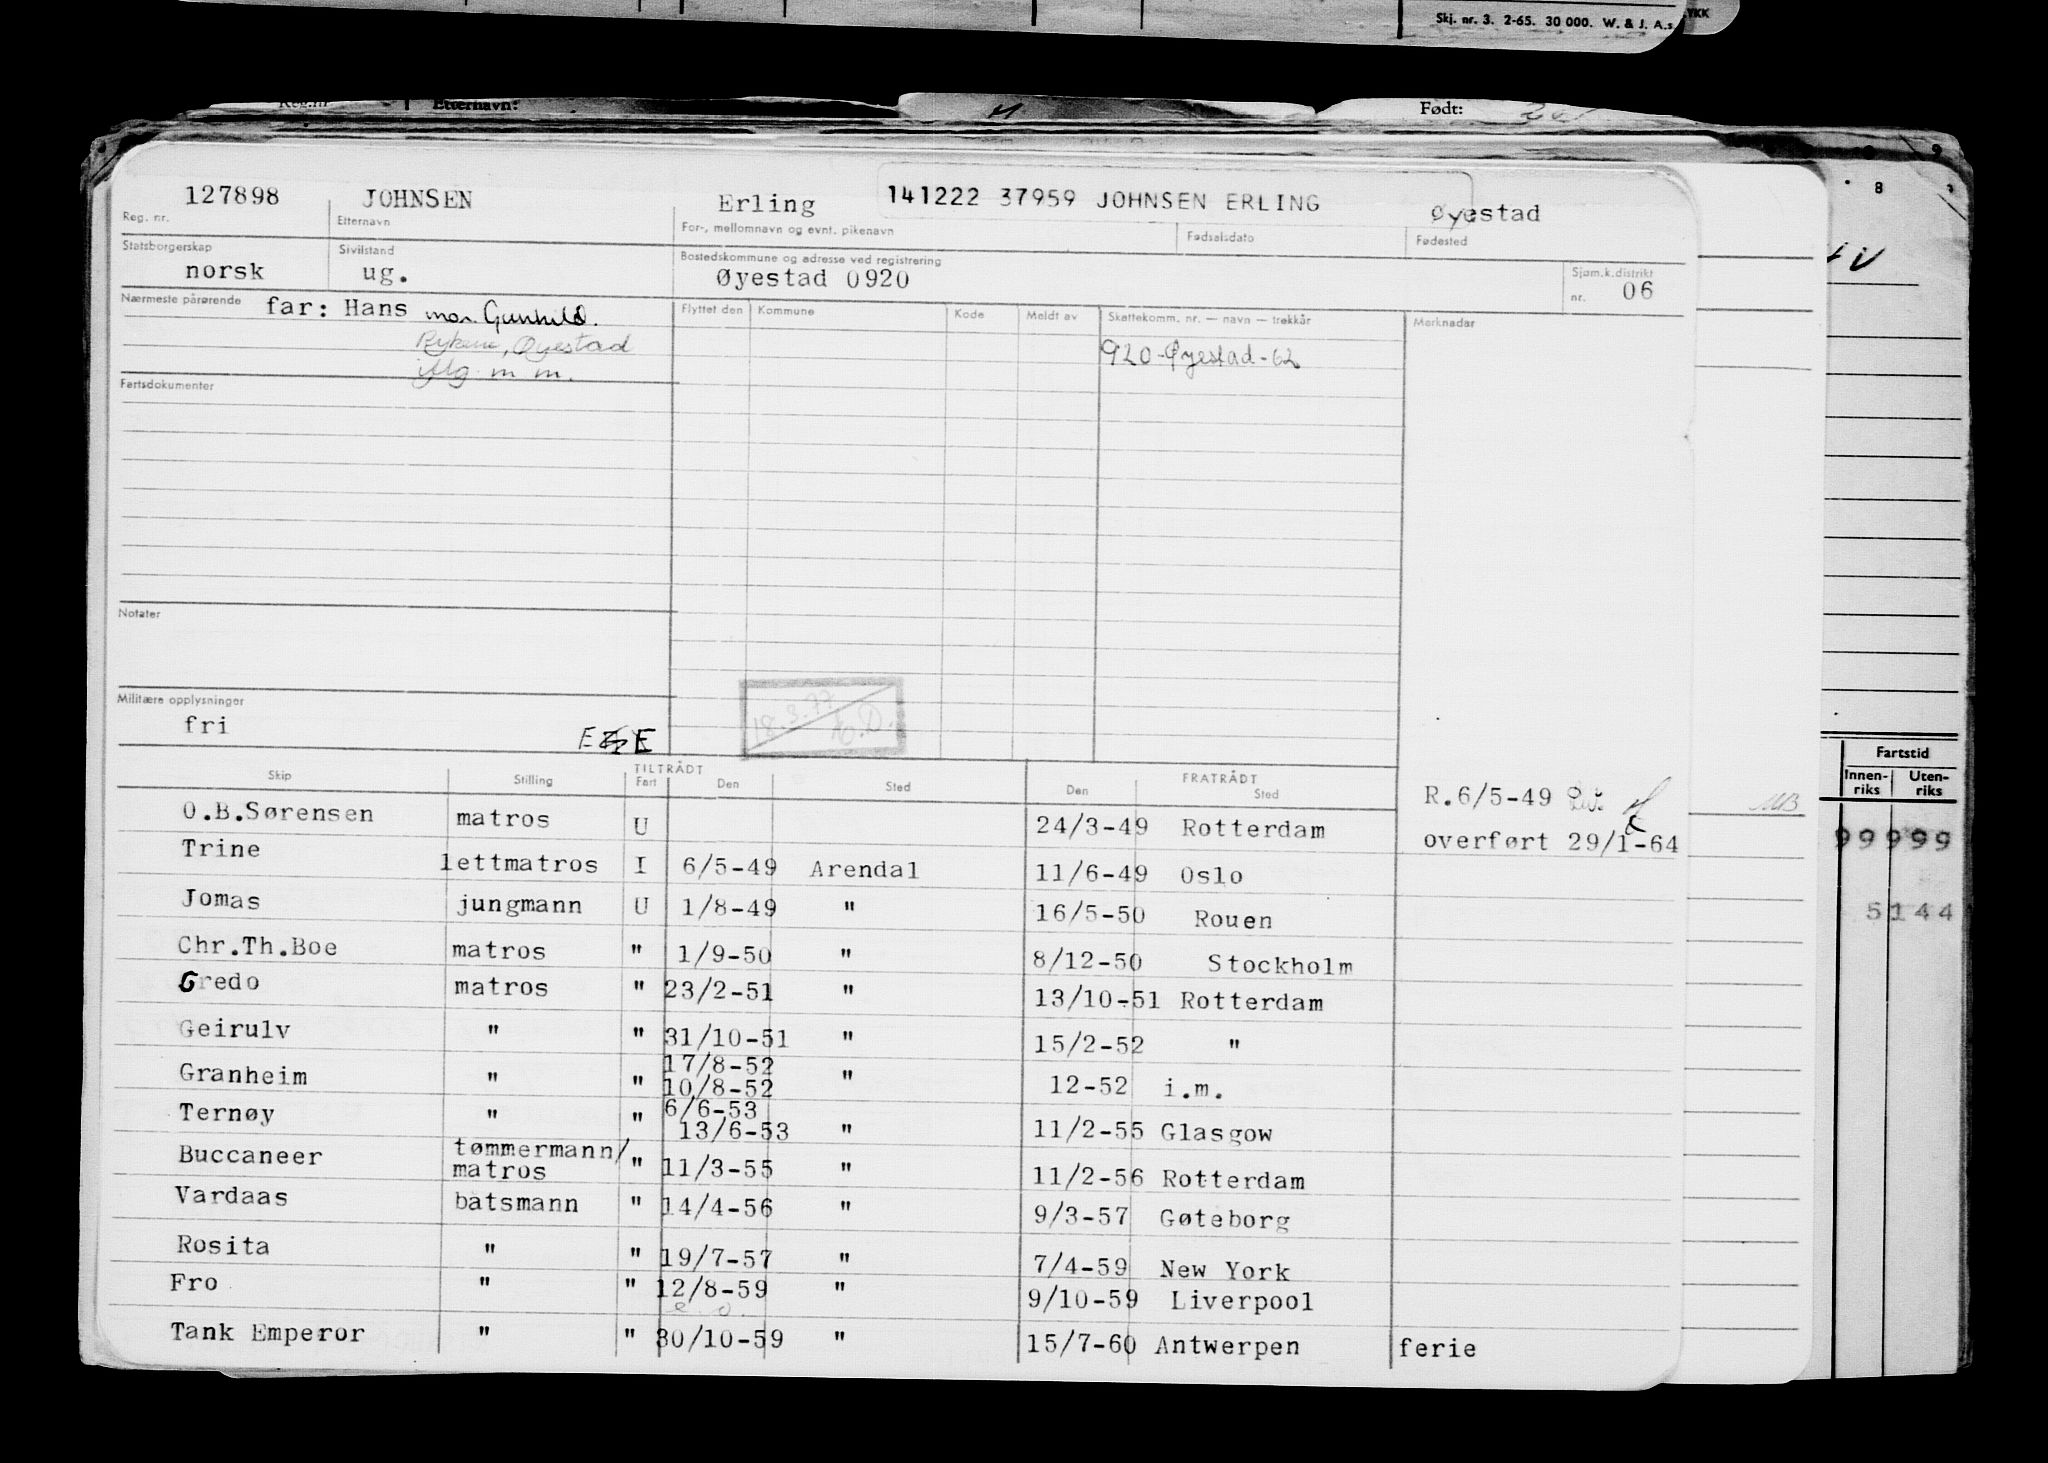 Skj. nr. 3. 2-65. 30 000. W. & J. A.s
YKK
Reg.nr Etternavn: Født:
127898 JOHNSEN Erling 141222 37959 JOHNSEN ERLING Øyestad
Reg. nr. Etternavn For-, mellomnavn og evnt. pikenavn Fødselsdato Fødested
Statsborgerskap Sivilstand Bostedskommune og adresse ved registrering Sjøm.k.distrikt
norsk ug. Øyestad 0920 nr. 06
Nærmeste pårørende far: Hans mor Gunhild.
Flyttet den Kommune Kode Meldt av Skattekomm. nr. — navn — trekkår Merknader
Rykene, Øyestad
920-Øyestad-62
m m.
Fartsdokumenter
Notater
Militære opplysninger
fri
E E
18.3.77
TILTRÅDT FRATRÅDT
Skip Stilling Fart Den Sted Den Sted
R.6/5-49
O.B.Sørensen matros U 24/3-49 Rotterdam overført 29/1-64
Trine lettmatros I 6/5-49 Arendal 11/6-49 Oslo
Jomas jungmann U 1/8-49 " 16/5-50 Rouen
Chr.Th.Boe matros " 1/9-50 " 8/12-50 Stockholm
Credo matros " 23/2-51 " 13/10-51 Rotterdam
Geirulv " " 31/10-51 " 15/2-52 "
17/8-52
Granheim " " 10/8-52 " 12-52 i.m.
6/6-53
Ternøy " " 13/6-53 " 11/2-55 Glasgow
tømmermann/
Buccaneer matros " 11/3-55 " 11/2-56 Rotterdam
Vardaas båtsmann " 14/4-56 " 9/3-57 Gøteborg
Rosita " " 19/7-57 " 7/4-59 New York
Fro " " 12/8-59 " 9/10-59 Liverpool
e. o.
Tank Emperor " " 30/10-59 " 15/7-60 Antwerpen ferie
8
Fartstid
Innen-riks Uten-riks
MB
99999
5144